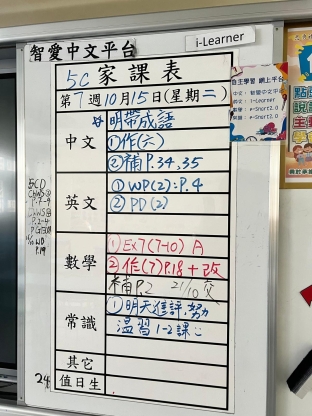 智愛中文平台
i-Learner
5C 家課表
第7週10月15日(星期二)
中文
☆明帶成語
①作(六)
②補P.34,35
英文
①WP(2):P.4
②PD(2)
數學
①Ex7(7-10) A
②作(7)P.18+改
補P.2 21/10交
常識
①明天進評,努
溫習1-2課
其它
值日生
24
5CD
P.7-9
P.2-4
WD
P.19
自主學習 網上平台
中文:智愛中文平台
英文:i-Learner
數學:e-Smart2.0
常識:e-Smart2.0